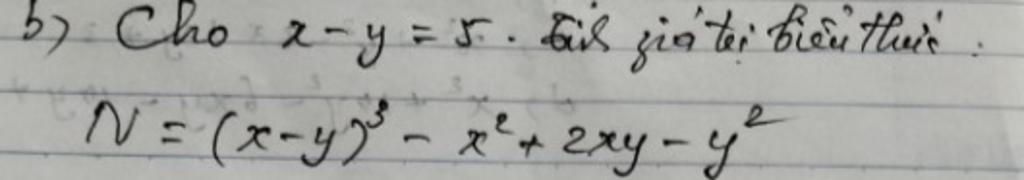 b) Cho x - y = 5. Tính giá trị biểu thức:
N = (x-y)³ - x² + 2xy - y²